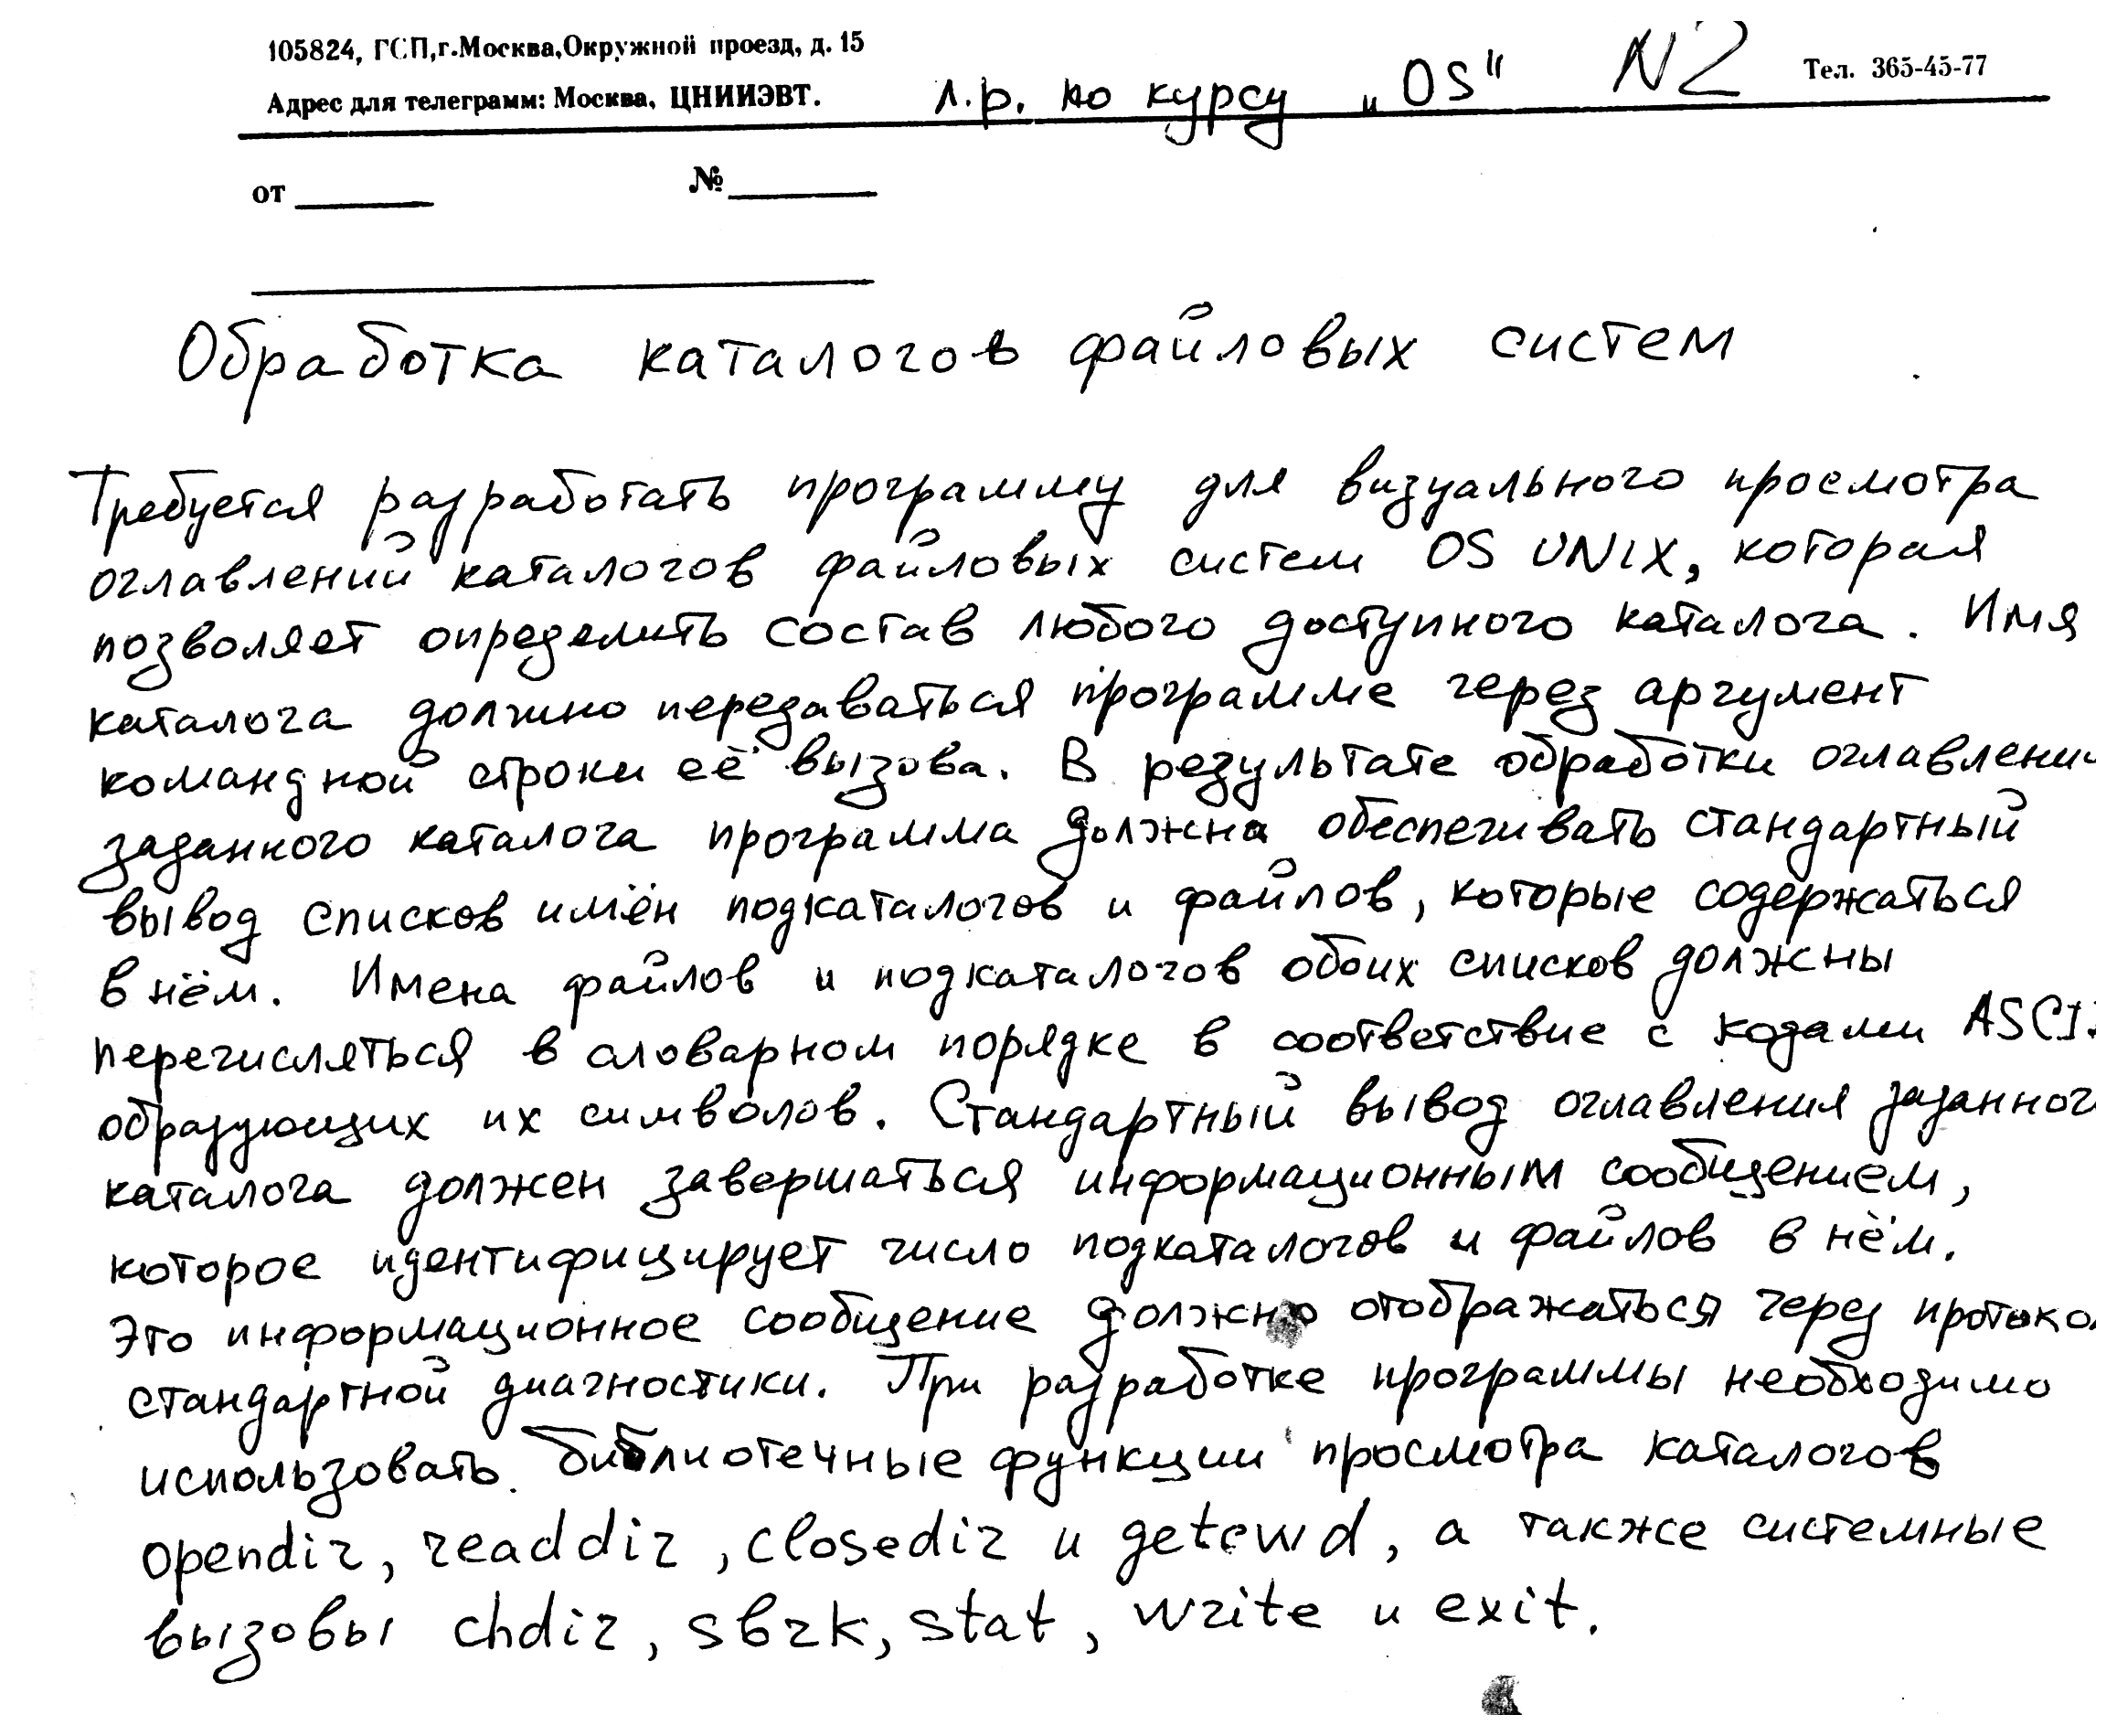 105824, ГСП,г.Москва,Окружной проезд, д. 15
Адрес для телеграмм: Москва, ЦНИИЭВТ.
л.р. по курсу „OS“ N2
Тел. 365-45-77
от №
Обработка каталогов файловых систем
Требуется разработать программу для визуального просмотра
оглавлений каталогов файловых систем OS UNIX, которая
позволяет определить состав любого доступного каталога. Имя
каталога должно передаваться программе через аргумент
командной строки её вызова. В результате обработки оглавлени
заданного каталога программа должна обеспечивать стандартный
вывод списков имён подкаталогов и файлов, которые содержаться
в нём. Имена файлов и подкаталогов обоих списков должны
перечисляться в словарном порядке в соответствие с кодами ASCI
образующих их символов. Стандартный вывод оглавления заданног
каталога должен завершаться информационным сообщением,
которое идентифицирует число подкаталогов и файлов в нём.
Это информационное сообщение должно отображаться через протоко
стандартной диагностики. При разработке программы необходимо
использовать библиотечные функции просмотра каталогов
opendir, readdir, closedir и getcwd, а также системные
вызовы chdir, sbrk, stat, write и exit.